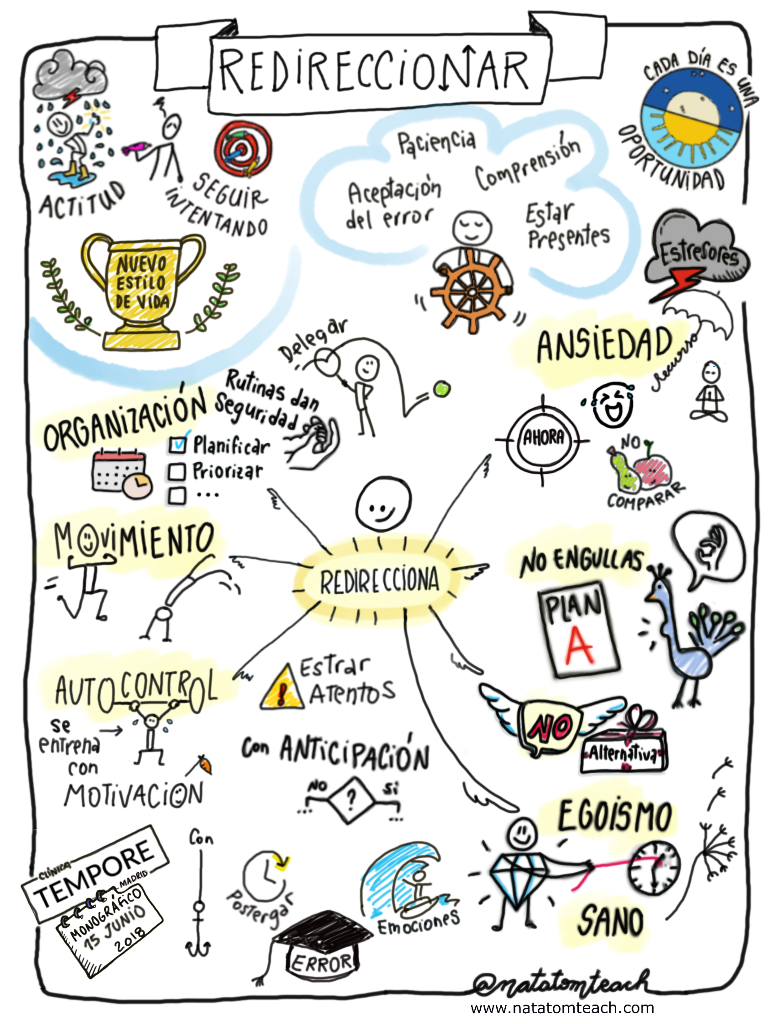 REDIRECCIONAR
ACTITUD
SEGUIR
INTENTANDO
Paciencia
Comprensión
Aceptación
del error
Estar
Presentes
CADA DÍA ES UNA
OPORTUNIDAD
NUEVO
ESTILO
DE VIDA
Estresores
recurso
ANSIEDAD
AHORA
NO
COMPARAR
Delegar
ORGANIZACIÓN
Rutinas dan
Seguridad
Planificar
Priorizar
...
MOViMIENTO
REDIRECCIONA
NO ENGULLAS
PLAN
A
AUTOCONTROL
se
entrena
con
MOTIVACIÓN
!
Estrar
Atentos
NO
Alternativa
con ANTICIPACIÓN
NO
?
Si
...
...
EGOÍSMO
SANO
CLÍNICA
TEMPORE
MADRID
MONOGRÁFICO
15 JUNIO
2018
Con
Postergar
ERROR
Emociones
@natatomteach
www.natatomteach.com